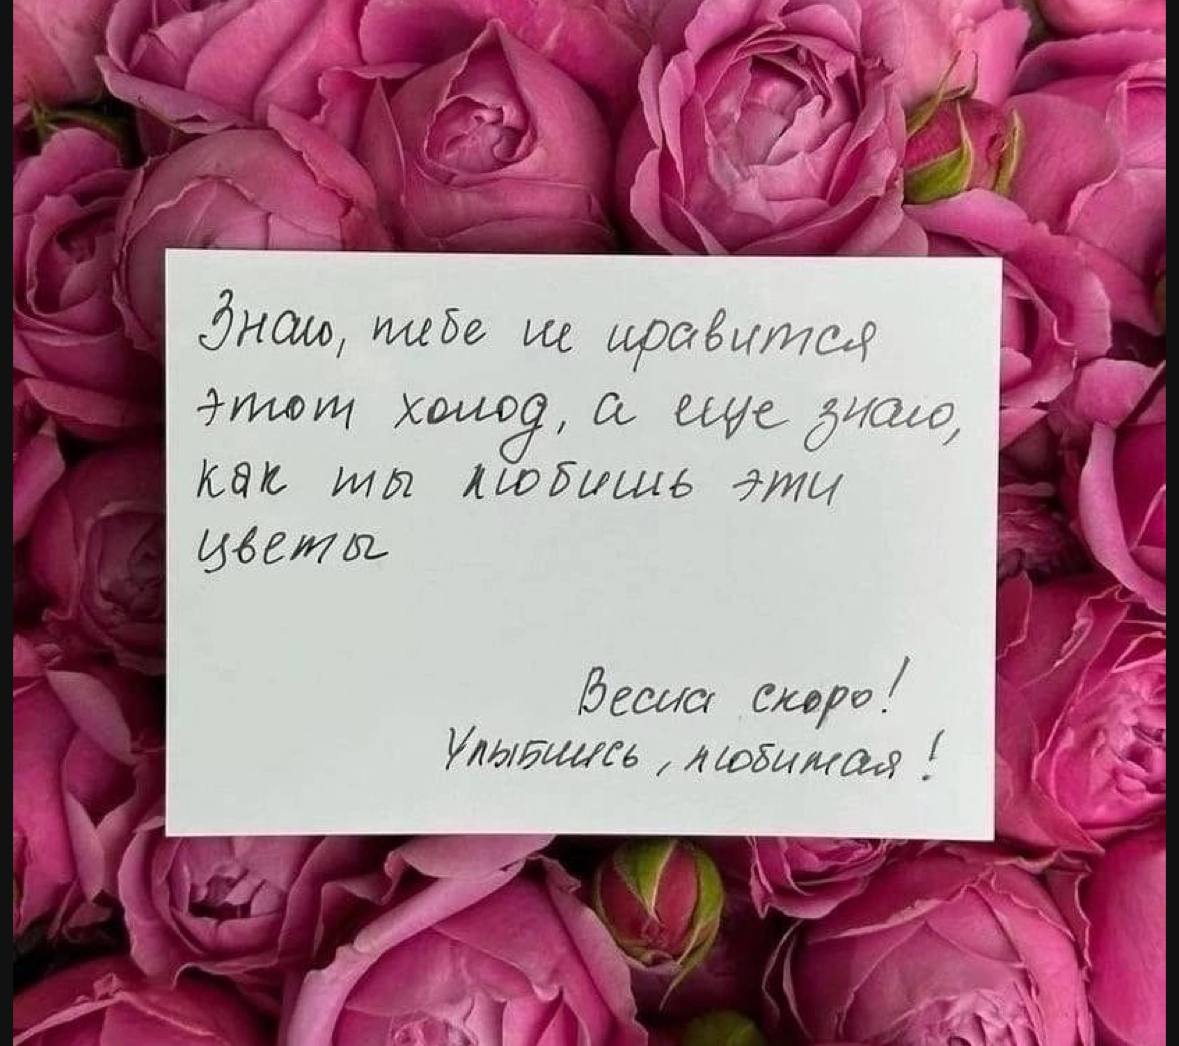 Знаю, тебе не нравится
этот холод, а еще знаю,
как ты любишь эти
цветы
Весна скоро!
Улыбнись, любимая!